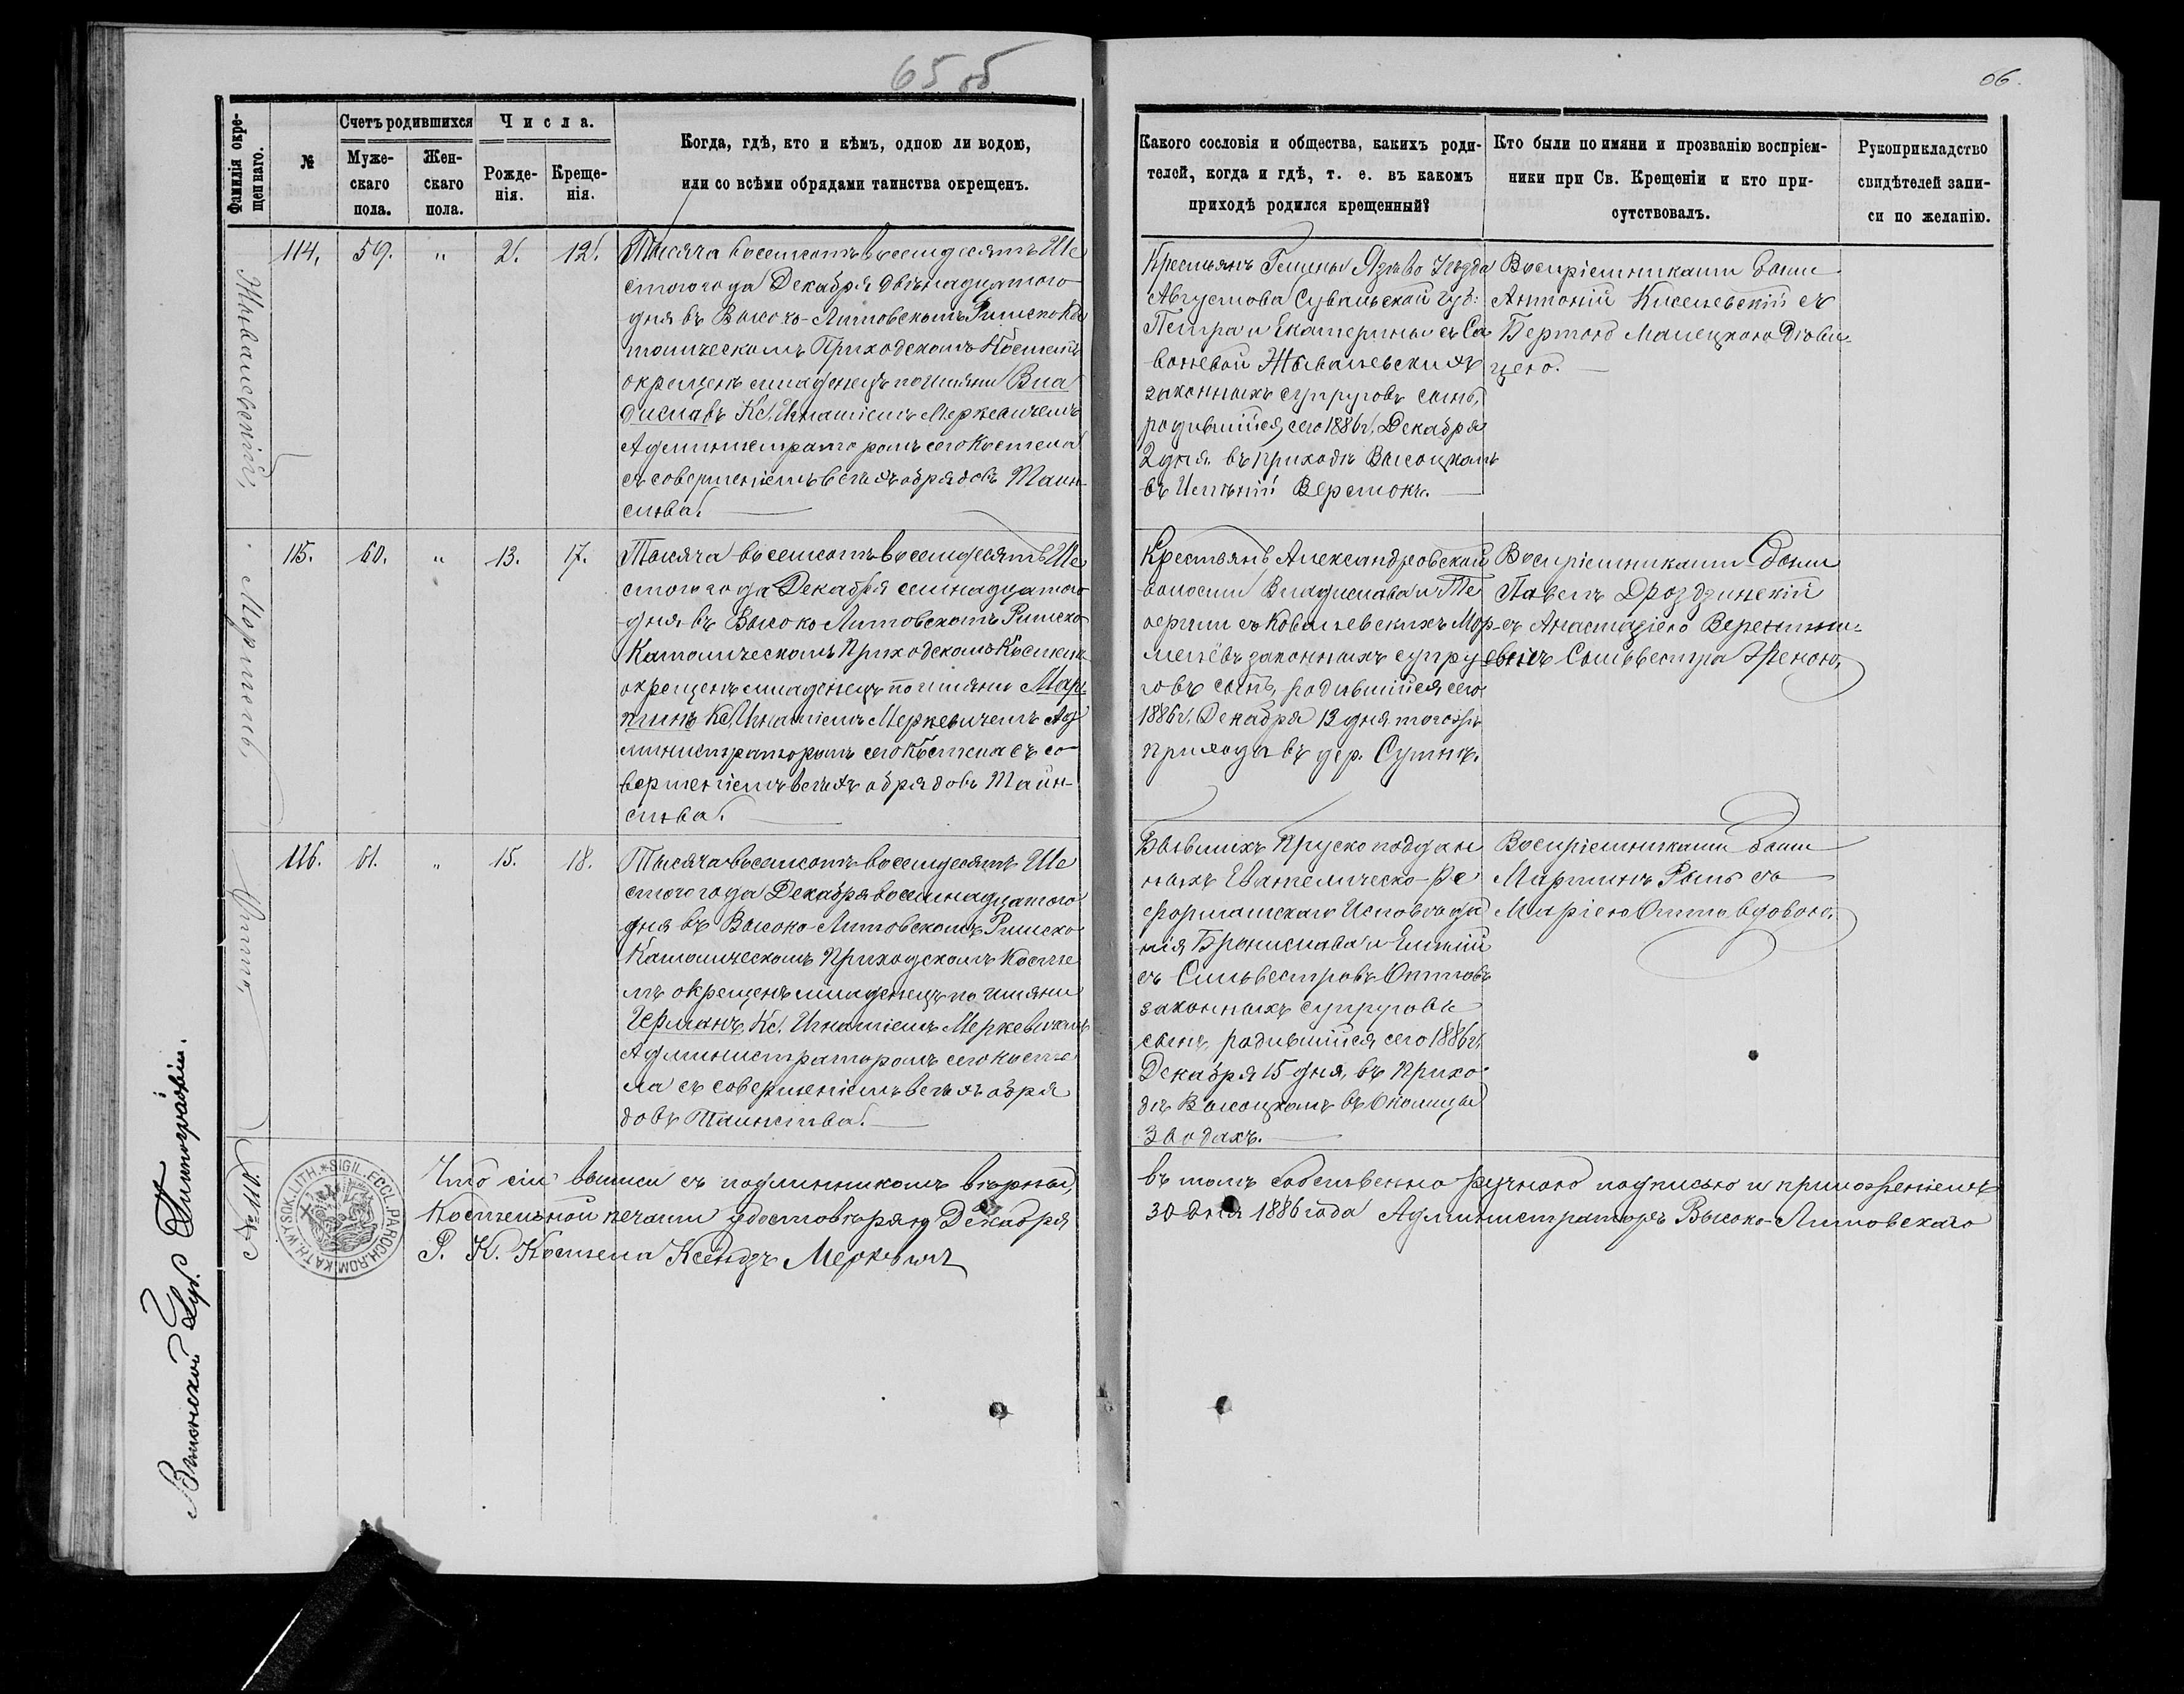 65 об
06.
Фамилія окре-
щеннаго.
№
Счетъ родившихся
Муже-
скаго
пола.
Жен-
скаго
пола.
Числа.
Рожде-
нія.
Креще-
нія.
Когда, гдѣ, кто и кѣмъ, одною ли водою,
или со всѣми обрядами таинства окрещенъ.
Какого сословія и общества, какихъ роди-
телей, когда и гдѣ, т. е. въ какомъ
приходѣ родился крещенный?
Кто были по имяни и прозванію воспріем-
ники при Св. Крещеніи и кто при-
сутствовалъ.
Рукоприкладство
свидѣтелей запи-
си по желанію.
114.
59.
"
2.
12.
Тысяча восемсотъ восемдесятъ Ше
стого года Декабря двѣнадцатого
дня въ Высоко-Литовскомъ Римско Ка
толическомъ Приходскомъ Костелѣ
окрещенъ младенецъ по имяни Вла
диславъ Кс. Игнатіемъ Меркевичемъ
Администраторомъ сего Костела
съ совершеніемъ всѣхъ обрядовъ Таин-
ства.
Крестьянъ Гмины Уѣзда
Августова Сувальской губ:
Петра и Екатерины съ Са
законныхъ супруговъ сынъ,
родившійся сего 1886 г. Декабря
2 дня въ приходѣ Высоцкомъ
въ Имѣніи
Воспріемниками были
Антоній Киселевскій съ
Малецкою Дѣви-
цею.
115.
60.
"
13.
17.
Мартель
Тысяча восемсотъ восемдесятъ Ше
стого года Декабря семнадцатого
дня въ Высоко Литовскомъ Римско
Католическомъ Приходскомъ Костелѣ
окрещенъ младенецъ по имяни Мар-
тинъ Кс. Игнатіемъ Меркевичемъ Ад
министраторомъ сего Костела съ со-
вершеніемъ всѣхъ обрядовъ Таин-
ства.
Крестьянъ Александровской
волости Владислава и
съ Ковалевскихъ Мар-
законныхъ супру
говъ сынъ, родившійся сего
1886 г. Декабря 13 дня тогожъ
прихода въ дер.
Воспріемниками были
Павелъ Дроздзинскій
съ Анастазіею
Сильвестра Женою,
116.
61.
"
15.
18.
Оттъ
Тысяча восемсотъ восемдесятъ Ше
стого года Декабря восемнадцатого
дня въ Высоко-Литовскомъ Римско
Католическомъ Приходскомъ Косте
лѣ окрещенъ младенецъ по имяни
Германъ, Кс. Игнатіемъ Меркевичемъ
Администраторомъ сего Косте
ла съ совершеніемъ всѣхъ обря
довъ Таинства.
Бывшихъ Пруско поддан
ныхъ Евангелическо-Ре
форматскаго Исповѣда
нія Бронислава и
съ Сильвестровъ Оттовъ
законныхъ супруговъ
сынъ, родившійся сего 1886 г.
Декабря 15 дня, въ Прихо
дѣ Высоцкомъ въ Околицы
Зводахъ.
Воспріемниками были
Мартинъ съ
Маріею Отто вдовою.
Что сіи выписи съ подлинникомъ вѣрны, въ томъ собственно ручною подписью и приложеніемъ
Костельной печати удостовѣряю Декабря 30 дня 1886 года Администраторъ Высоко-Литовскаго
Р. К. Костела Ксендзъ Меркевичъ
SIGIL. ECCL. PAROCH. ROM. KATH. WYSOK. LITH. *
Виленской Губ. Типографіи.